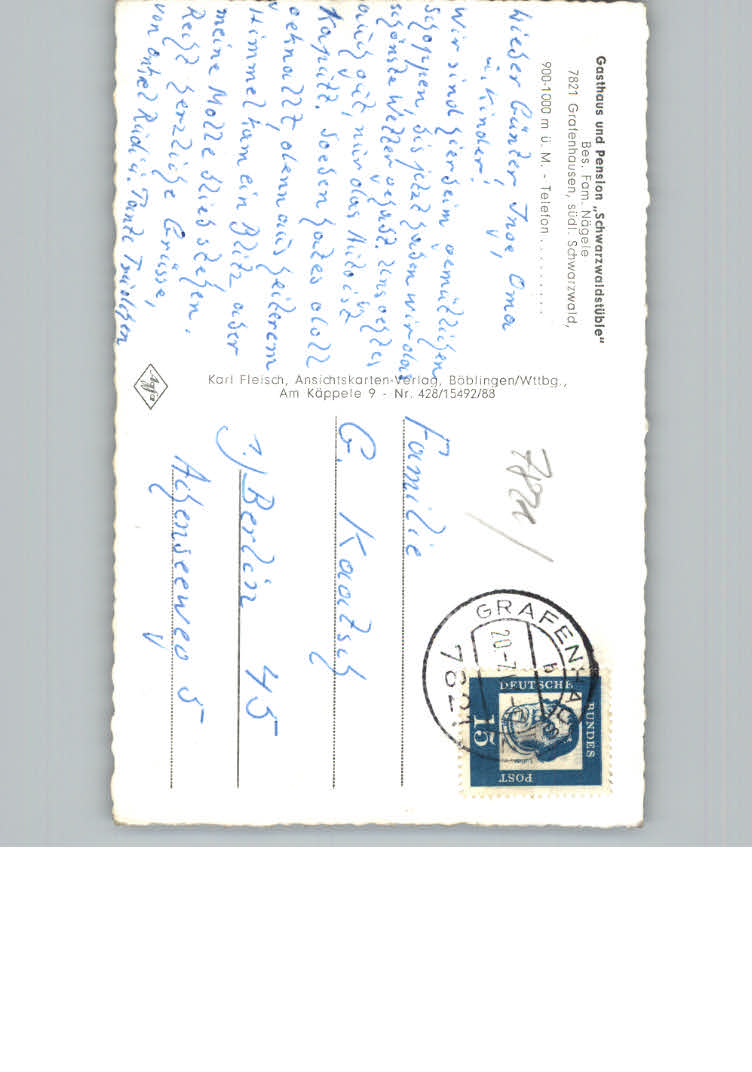 Gasthaus und Pension „Schwarzwaldstüble"
Bes. Fam. Nägele
7821 Grafenhausen, südl. Schwarzwald,
900-1000 m ü. M. - Telefon . . . . . . . . .
Lieber Günter, Inge, Oma
u. Kinder!
Wir sind hier beim gemütlichen
Schoppen. Bis jetzt haben wir das
schönste Wetter gehabt. Uns geht es
auch gut, nur das Auto ist
Kaputt. Soeben hat es doll
geknallt, denn aus heiterem
Himmel kam ein Blitz aber
meine Molle blieb stehen.
Recht herzliche Grüsse,
von Onkel Rudi u. Tante Trudchen
Agfa
Karl Fleisch, Ansichtskarten-Verlag, Böblingen/Wttbg.,
Am Käppele 9 - Nr. 428/15492/88
Familie
G. Kaatsch
1.) Berlin 45
Achenseeweg 5
7821
GRAFENHA
20.-7.
7821
DEUTSCHE
BUNDES
POST
15